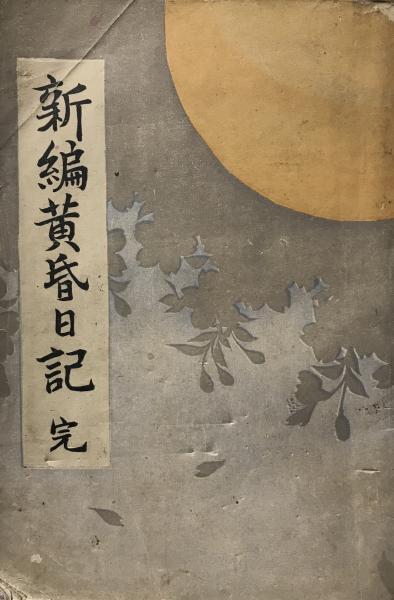 新編黄昏日記 完